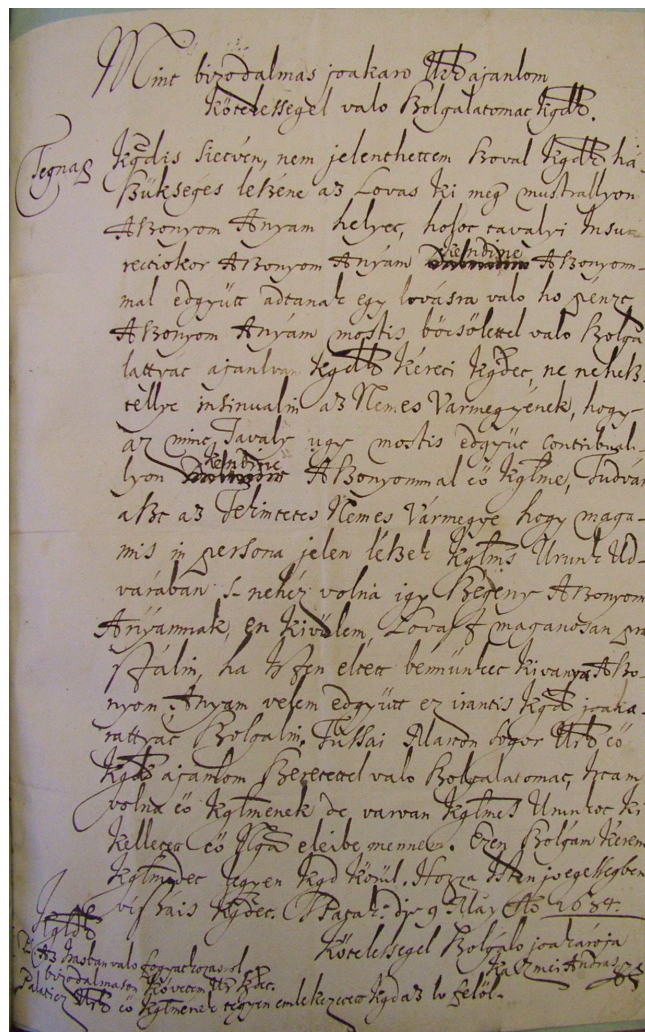 Mint bizodalmas joakaro Urk ajanlom
kötelesseggel valo Bolgalatomat kgdk.
Tegnap kgdis sietvén, nem jelenthettem szoval kgdk ha
szükséges leszene az Lovas ki meg mustrallyon
Aszonyom Anyam helyet, holot tavalyi Insu-
rectiokor Aszonyom Anyám Rendine Aszonyom-
mal edgyütt adtanak egy lovásra valo ho pénzt
Aszonyom Anyám mostis böcsölettel valo szolga
lattyat ajanlvan kgdk kéreti kgdet, ne nehez-
tellye insinualni az Nemes Varmegyének, hogy
az mint Tavaly ugy mostis edgyüt contribual-
lyon Rendine Aszonyommal eö kglme, Tudván
aszt az Tekintetes Nemes Vármegye hogy maga-
mis in persona jelen lészek kglmes Urunk Ud-
varában s nehéz volna igy szegeny Aszonyom
Anyámnak, en kivülem, Lovast maganosan pra
stálni, ha Isten eltett bennünket kivanya Aszo-
nyom Anyam velem edgyütt ez irantis kgd joaka-
rattyát szolgalni. Tussai Marton sogor Urk eö
kgdk ajanlom szeretettel valo szolgalatomat, irtam
volna eö kglmenek de varvan kglmes Urunkot ki
kelletet eö Nga eleibe mennem. Ezen szolgám kérem
kglmedet legyen kgd körül. Hozza Isten jo egessegben
viszais kgdet. Patak: die 9 May Ao 1684.
kgldk
Kötelesseggel szolgálo joakaroja
Kazmei András
Az irasban valo fogyatkozasrol
bizodalmason követem Ur kgdet.
Palaticz Urk eö kglmének tegyen emlekezetet kgd az lo felöl.